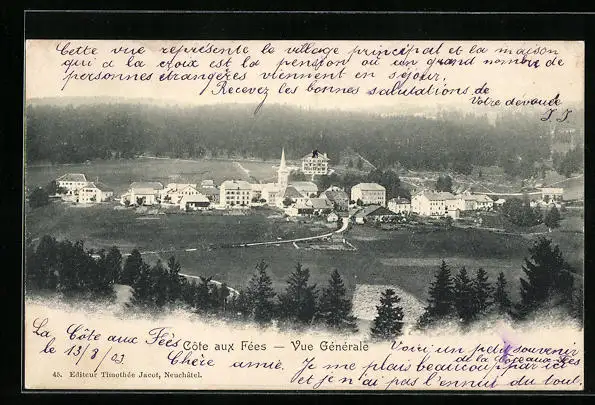 Cette vue représente le village principal et la maison
qui a la croix est la pension où un grand nombre de
personnes étrangères viennent en séjour.
Recevez les bonnes salutations de
Votre dévouée
J. J.
La Côte aux Fées
le 13/8/03
Côte aux Fées — Vue Générale
Chère amie. Je me plais beaucoup par ici
et je n'ai pas l'ennui du tout.
Voici un petit souvenir
de la Côte aux Fées
45. Editeur Timothée Jacot, Neuchâtel.